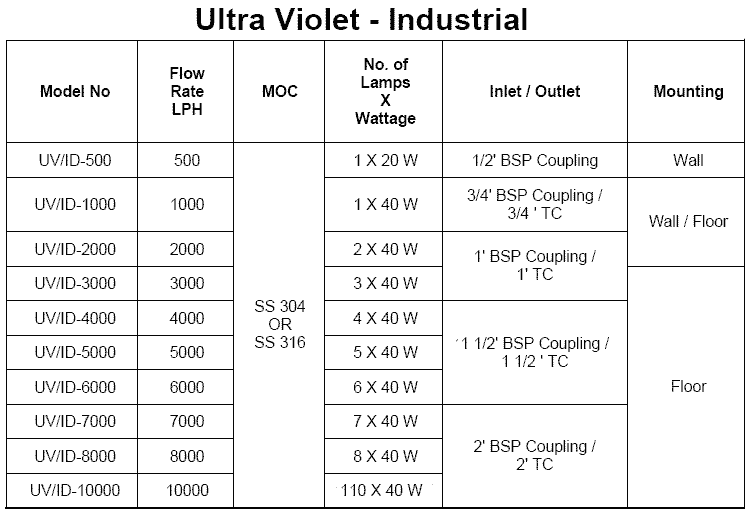 Ultra Violet - Industrial
Model No
Flow
Rate
LPH
MOC
No. of
Lamps
X
Wattage
Inlet / Outlet
Mounting
UV/ID-500
500
SS 304
OR
SS 316
1 X 20 W
1/2' BSP Coupling
Wall
UV/ID-1000
1000
1 X 40 W
3/4' BSP Coupling /
3/4 ' TC
Wall / Floor
UV/ID-2000
2000
2 X 40 W
1' BSP Coupling /
1' TC
UV/ID-3000
3000
3 X 40 W
Floor
UV/ID-4000
4000
4 X 40 W
1 1/2' BSP Coupling /
1 1/2 ' TC
UV/ID-5000
5000
5 X 40 W
UV/ID-6000
6000
6 X 40 W
UV/ID-7000
7000
7 X 40 W
2' BSP Coupling /
2' TC
UV/ID-8000
8000
8 X 40 W
UV/ID-10000
10000
110 X 40 W